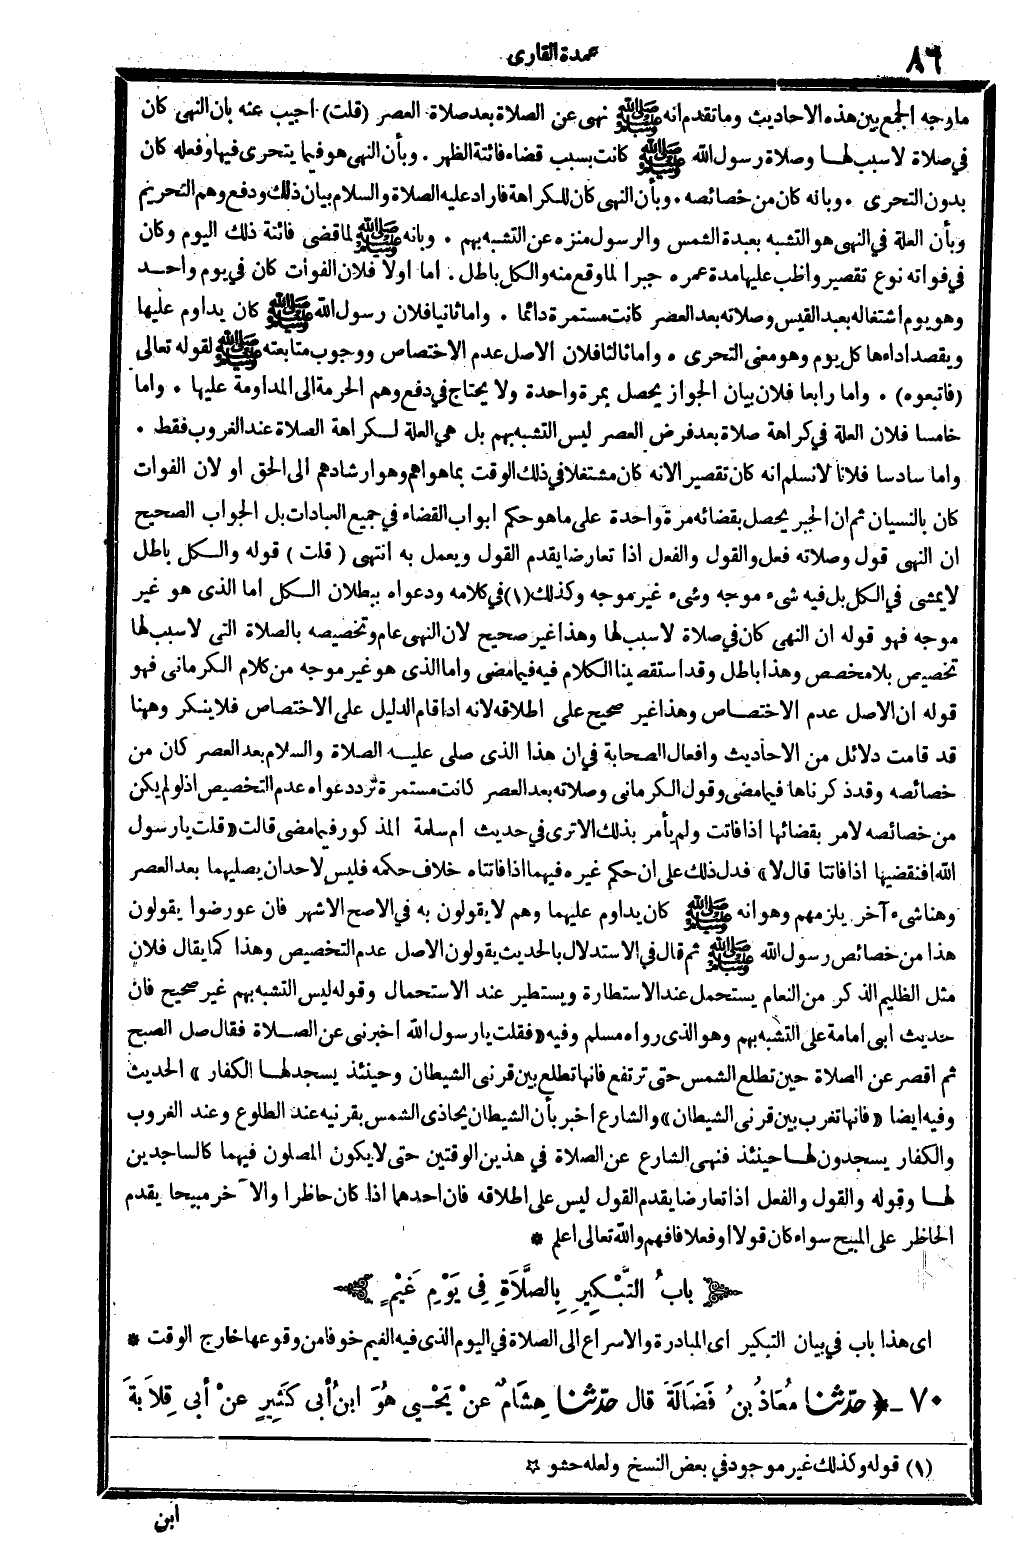 ٨٦
عمدة القارى
ماوجه الجمع بين هذه الاحاديث وما تقدم انه ﷺ نهى عن الصلاة بعد صلاة العصر (قلت) اجيب عنه بان النهى كان
فى صلاة لاسبب لها وصلاة رسول الله ﷺ كانت بسبب قضاء فائتة الظهر . وبأن النهى هو فيما يتحرى فيها وفعله كان
بدون التحرى . وبانه كان من خصائصه . وبأن النهى كان للكراهة فاراد عليه الصلاة والسلام بيان ذلك ودفع وهم التحريم
وبأن العلة فى النهى هو التشبه بعبدة الشمس والرسول منزه عن التشبه بهم . وبانه ﷺ لما قضى فائتة ذلك اليوم وكان
فى فواته نوع تقصير واظب عليها مدة عمره جبرا لما وقع منه والكل باطل . اما اولا فلان الفوات كان فى يوم واحد
وهو يوم اشتغاله بعبد القيس وصلاته بعد العصر كانت مستمرة دائما . واما ثانيا فلان رسول الله ﷺ كان يداوم عليها
ويقصد اداءها كل يوم وهو معنى التحرى . واما ثالثا فلان الاصل عدم الاختصاص ووجوب متابعته ﷺ لقوله تعالى
(فاتبعوه) . واما رابعا فلان بيان الجواز يحصل بمرة واحدة ولا يحتاج فى دفع وهم الحرمة الى المداومة عليها . واما
خامسا فلان العلة فى كراهة صلاة بعد فرض العصر ليس التشبه بهم بل هى العلة لكراهة الصلاة عند الغروب فقط .
واما سادسا فلانا لانسلم انه كان تقصير الانه كان مشتغلا فى ذلك الوقت بما هو اهم وهو ارشادهم الى الحق او لان الفوات
كان بالنسيان ثم ان الجبر يحصل بقضائه مرة واحدة على ما هو حكم ابواب القضاء فى جميع العبادات بل الجواب الصحيح
ان النهى قول وصلاته فعل والقول والفعل اذا تعارضا يقدم القول ويعمل به انتهى (قلت) قوله والكل باطل
لايمشى فى الكل بل فيه شىء موجه وشىء غير موجه وكذلك (١) فى كلامه ودعواه ببطلان الكل اما الذى هو غير
موجه فهو قوله ان النهى كان فى صلاة لاسبب لها وهذا غير صحيح لان النهى عام وتخصيصه بالصلاة التى لاسبب لها
تخصيص بلا مخصص وهذا باطل وقد استقصينا الكلام فيه فيما مضى واما الذى هو غير موجه من كلام الكرمانى فهو
قوله ان الاصل عدم الاختصاص وهذا غير صحيح على اطلاقه لانه اذا قام الدليل على الاختصاص فلاينكر وههنا
قد قامت دلائل من الاحاديث وافعال الصحابة فى ان هذا الذى صلى عليه الصلاة والسلام بعد العصر كان من
خصائصه وقد ذكرناها فيما مضى وقول الكرمانى وصلاته بعد العصر كانت مستمرة ترد دعواه عدم التخصيص اذ لو لم يكن
من خصائصه لامر بقضائها اذا فاتت ولم يأمر بذلك الاترى فى حديث ام سلمة المذكور فيما مضى قالت «قلت يارسول
الله افنقضيها اذا فاتتا قال لا» فدل ذلك على ان حكم غيره فيهما اذا فاتتاه خلاف حكمه فليس لاحد ان يصليهما بعد العصر
وهنا شىء آخر يلزمهم وهو انه ﷺ كان يداوم عليهما وهم لايقولون به فى الاصح الاشهر فان عورضوا يقولون
هذا من خصائص رسول الله ﷺ ثم قال فى الاستدلال بالحديث يقولون الاصل عدم التخصيص وهذا كما يقال فلان
مثل الظليم الذكر من النعام يستحمل عند الاستطارة ويستطير عند الاستحمال وقوله ليس التشبه بهم غير صحيح فان
حديث ابى امامة على التشبه بهم وهو الذى رواه مسلم وفيه «فقلت يارسول الله اخبرنى عن الصلاة فقال صل الصبح
ثم اقصر عن الصلاة حين تطلع الشمس حتى ترتفع فانها تطلع بين قرنى الشيطان وحينئذ يسجد لها الكفار» الحديث
وفيه ايضا «فانها تغرب بين قرنى الشيطان» والشارع اخبر بأن الشيطان يحاذى الشمس بقرنيه عند الطلوع وعند الغروب
والكفار يسجدون لها حينئذ فنهى الشارع عن الصلاة فى هذين الوقتين حتى لايكون المصلون فيهما كالساجدين
لها وقوله والقول والفعل اذا تعارضا يقدم القول ليس على اطلاقه فان احدهما اذا كان حاظرا والآخر مبيحا يقدم
الحاظر على المبيح سواء كان قولا او فعلا فافهم والله تعالى اعلم *
بابُ التَّبْكِيرِ بِالصَّلَاةِ فِى يَوْمِ غَيْمٍ
اى هذا باب فى بيان التبكير اى المبادرة والاسراع الى الصلاة فى اليوم الذى فيه الغيم خوفا من وقوعها خارج الوقت *
٧٠ ـ ﴿ حَدَّثَنا مُعَاذُ بنُ فَضَالَةَ قال حَدَّثنا هِشَامٌ عنْ يَحْيى هُوَ ابنُ أبى كَثِيرٍ عنْ أبى قِلَابَةَ
(١) قوله وكذلك غير موجود فى بعض النسخ ولعله حشو
ابن